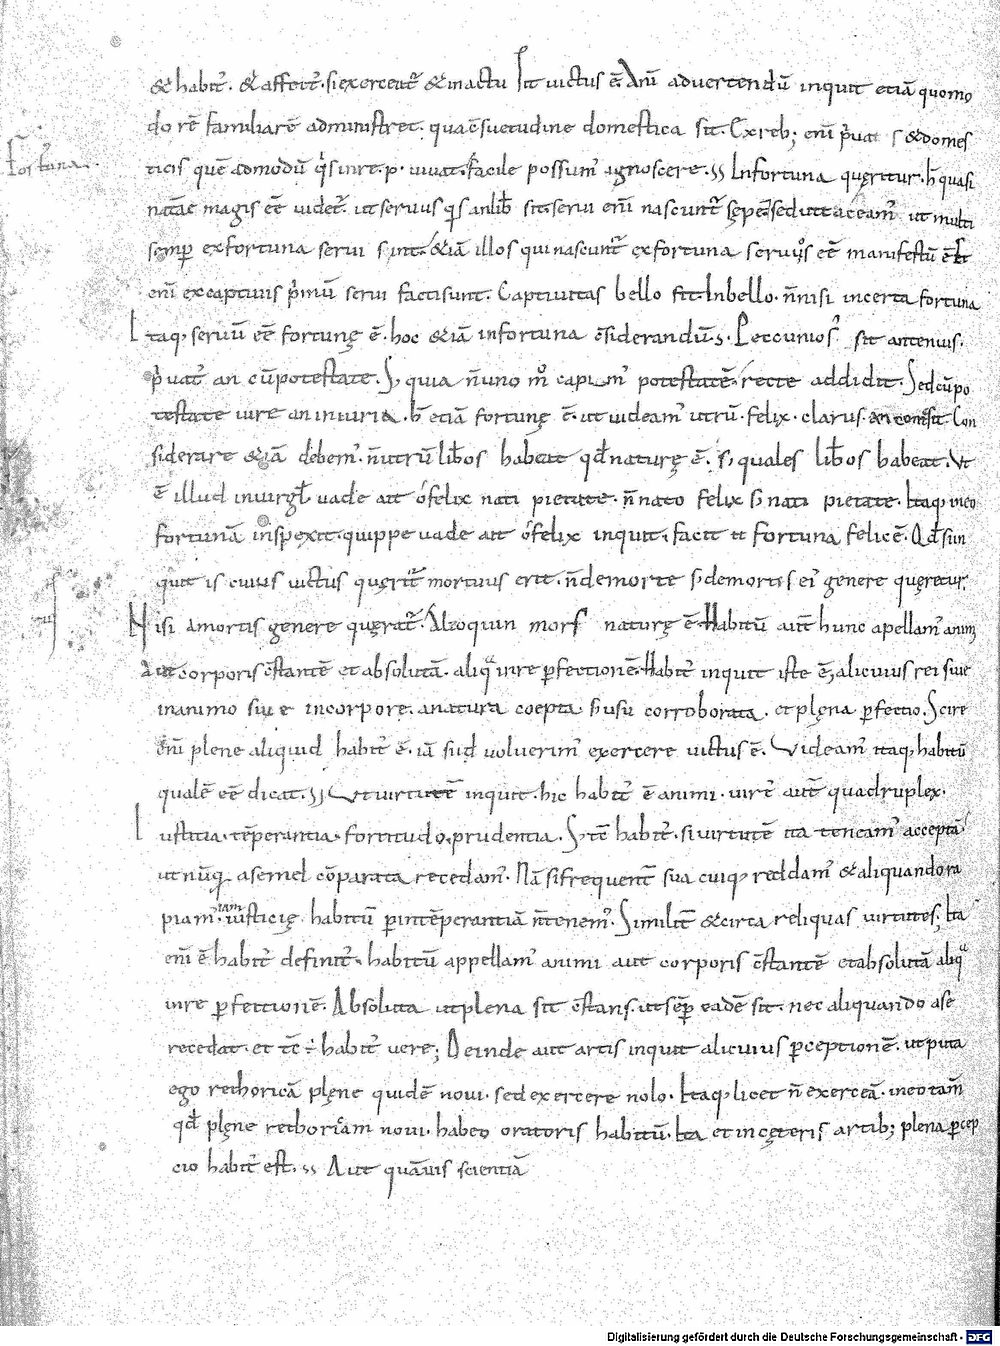 & habit᷒. & affect᷒. si exerceat᷒ & in actu sit uictus ē. Anī aduertendū inquit etiā quomo
do rē familiarē administret. qua c̄suetudine domestica sit. Ex reb; enī p̄uat & domes
fortuna
ticis quē admodū q̊s in re.p. uiuat. facile possum᷒ ignoscere. In fortuna quęritur. h̄ quasi
naturae magis eē uidet᷒. ut seruus q̊s an lib̄ sit. serui enī nascunt᷒ sępe. sed ut multi
semp̄ ex fortuna serui sint. & iā illos qui nascunt᷒ ex fortuna seruos eē manifestū ē.
enī ex captiuis p̄mū serui facti sunt. Captiuitas bello fit. In bello. n̄ nisi incerta fortuna
Itaq; seruū eē fortunę ē. hoc & iā in fortuna c̄siderandū. Peccunios᷒ sit an tenuis.
p̄uat᷒ an cū potestate. S; quia n̄ uno m̊ capim᷒ potestatē. recte addidit. Sed cū po
testate iure an iniuria. h̄ etiā fortunę ē. ut uideam᷒ utrū. felix. clarus. Con
siderare & iā debem᷒. n̄ utrū lib̄os habeat qđ naturę ē. s; quales lib̄os habeat. Vt
ē illud in uirgł uade ait ó felix nati pietate. n̄ nato felix s; nati pietate. Itaq; in eo
fortunā inspexit. quippe uade ait ó felix inquit. facit te fortuna felicē. Qđ si in
quit is cuius uictus quęrit᷒ mortuus erit. n̄ de morte s; de mortis ei᷒ genere quęretur.
Nisi a mortis genere quęrat᷒. Alioquin mors naturę ē. Habitū aut̄ hunc apellam᷒ animi
Aut corporis c̄stantē et absolutā. aliqua in re p̄fectionē. Habit᷒ inquit iste ē, alicuius rei siue
in animo siue in corpore. a natura coepta. s; usu corroborata. et plęna p̄fectio. Scire
enī plene aliquid habit᷒ ē. iā si id uoluerim᷒ exercere uictus ē. Videam᷒ itaq; habitū
qualē eē dicat. Vt uirtutē inquit. hic habit᷒ ē animi. uirt᷒ aut̄ quadruplex.
Iustitia. tēperantia. fortitudo. prudentia. S; tē habit᷒. si uirtutē ita teneam᷒ acceptā
ut nūq; a semel cōparata recedam᷒. Nā si frequent̄ sua cuiq; reddam᷒ & aliquando ra
piam᷒. iam iusticię habitū p̄ intēperantiā n̄ tenem᷒. Similit̄ & circa reliquas uirtutes; Ita
enī ē habit᷒ definit᷒. habitū appellam᷒ animi aut corporis c̄stantē et absolutā aliqua
in re p̄fectionē. Absoluta ut plena sit c̄stans. ut sēp̄ eadē sit. nec aliquando a se
recedat. et tc̄ ÷ habit᷒ uere; Deinde aut artis inquit alicuius p̄ceptionē. ut puta
ego rethoricā plęne quidē noui. sed exercere nolo. Itaq; licet n̄ exerceā. in eo tam̄
qđ plęne rethoricam noui. habeo oratoris habitū. Ita et in cęteris artib; plena p̄cep
cio habit᷒ est. Aut quāuis scientiā
Digitalisierung gefördert durch die Deutsche Forschungsgemeinschaft - DFG